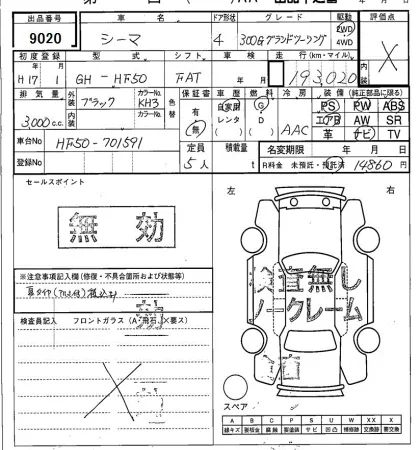 出品番号 車名 ドア形状 グレード 駆動 評価点
9020 シーマ 4 300Gグランドツーリング 2WD 4WD X
初度登録 型式 シフト 車検 走行(km・マイル)
H17 1 GH-HF50 FAT 年 月 193,020
排気量 外装 カラーNo. 色替 保証書 車歴 燃料 冷房 装備(純正部品に限る)
3,000 c.c. ブラック KH3 有 無 自家用 レンタ G D AAC PS PW ABS
内装 カラーNo. エアB AW SR
革 ナビ TV
車台No HF50-701591 定員 5人 積載量 t 名変期限 年 月 日
登録No R料金 未預託・預託済 14860円
セールスポイント
無効
左 右
※注意事項記入欄(修復・不具合箇所および状態等)
検査員記入 フロントガラス(A・飛石・X要ス)
検査無し
ノークレーム
スペア
A B C P S U W X XX
線キズ 要板金 腐触 要塗装 サビ 凹凸 補修跡 要交換 交換済